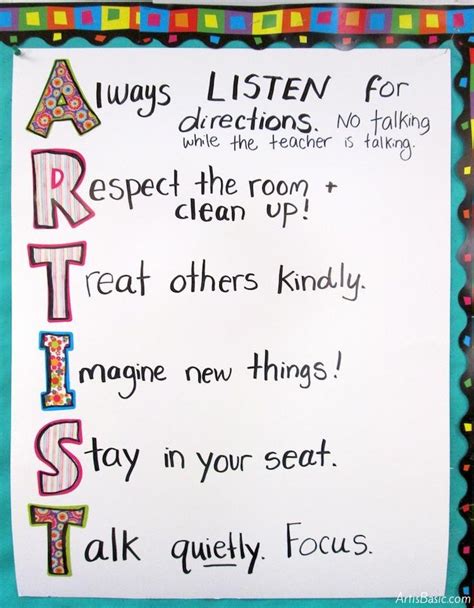 Always LISTEN for
directions. No talking
while the teacher is talking.
Respect the room +
clean up!
Treat others kindly.
Imagine new things!
Stay in your seat.
Talk quietly. Focus.
ArtisBasic.com